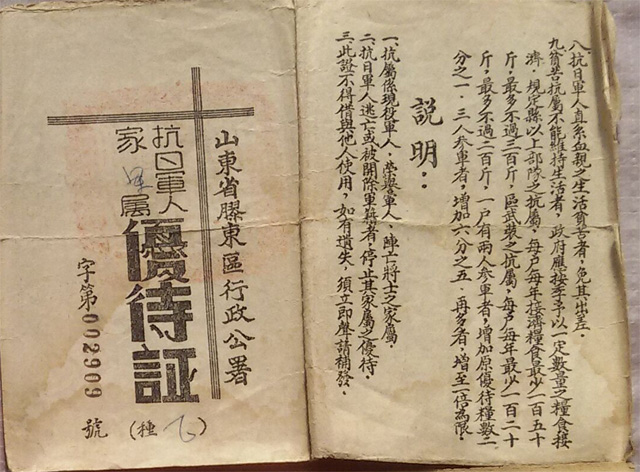 八、抗日軍人直系血親之生活貧苦者，免其出差．
九、貧苦抗屬不能維持生活者，政府應按季予以一定數量之糧食接
濟．規定縣以上部隊之抗屬，每户每年接濟糧食最少一百五十
斤，最多不過三百斤，區武裝之抗屬，每户每年最少一百二十
斤，最多不過二百斤．一户有兩人參軍者，增加原優待糧數二
分之一．三人參軍者，增加六分之五．再多者，增至一倍為限．
説明：
一、抗屬係現役軍人，榮譽軍人，陣亡將士之家屬．
二、抗日軍人逃亡或被開除軍籍者，停止其家屬之優待．
三、此證不得借與他人使用，如有遺失，須立即聲請補發．
山東省膠東區行政公署
抗日軍人
家屬
優待証
字第002909
號（種）